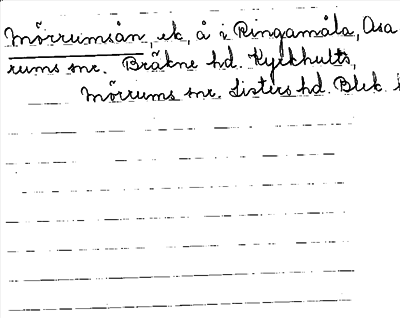 Mörrumsån, ek, å i Ringamåla, Asa
rums snr. Bräkne hd. Kyrkhults,
Mörrums snr. Listers hd. Blek.